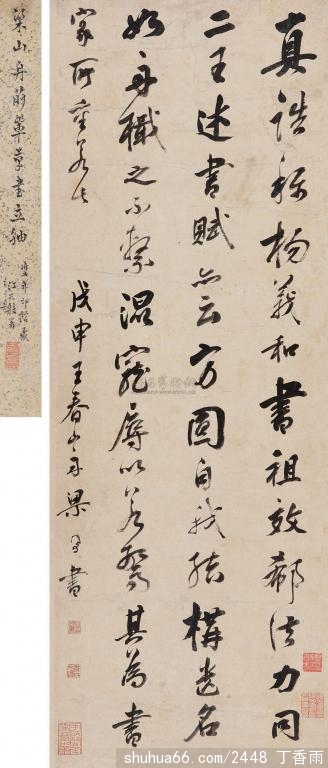 真誥称楊羲和書祖效郗法力同
二王述書賦亦云方圓自我結構遺名
如舟檝之不繫混寵辱以若驚其為書
家所重若此
戊申王春山舟梁同書
梁山舟前輩草書立軸
shuhua66.com/2448 丁香雨